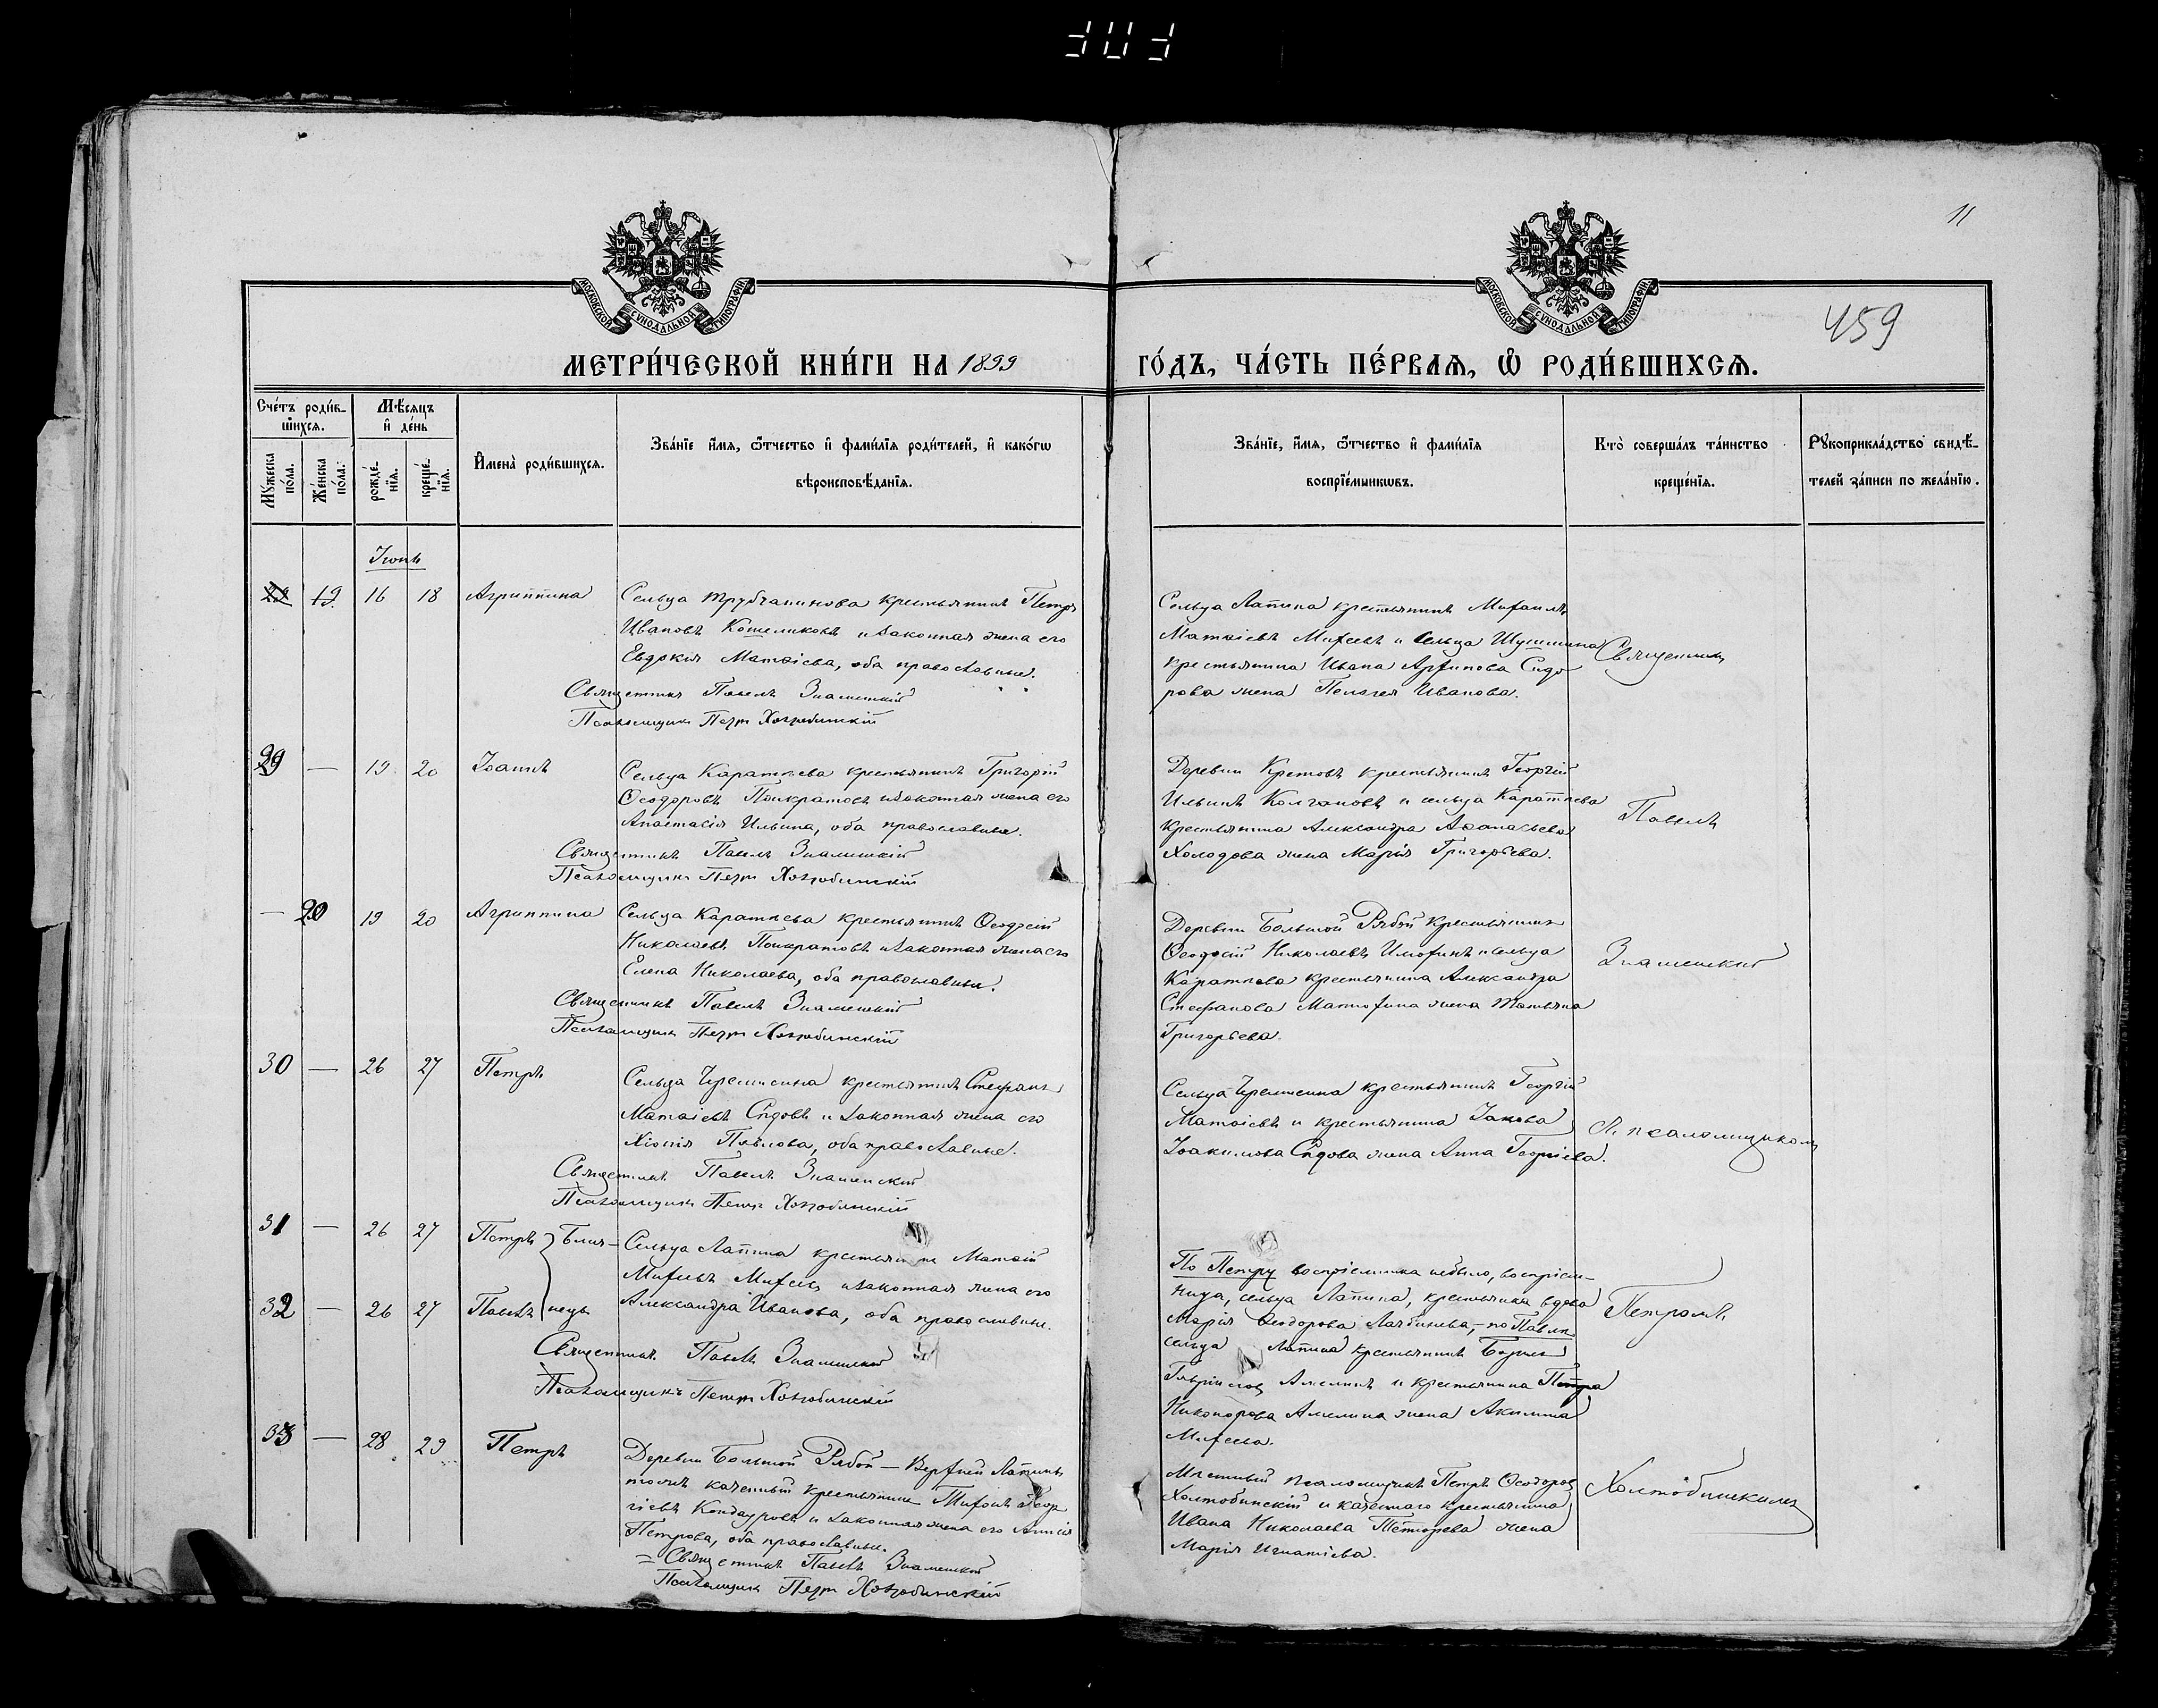 11
459
МОСКОВСКОЙ СѴНОДАЛЬНОЙ ТИПОГРАФІИ
МОСКОВСКОЙ СѴНОДАЛЬНОЙ ТИПОГРАФІИ
МЕТРИ́ЧЕСКОЙ КНИ́ГИ НА 1899
ГО́ДЪ, ЧА́СТЬ ПЕ́РВАѦ, Ѡ҆ РОДИ́ВШИХСѦ.
Сче́тъ роди́в-
шихсѧ.
Мꙋжеска по́ла.
Же́нска по́ла.
Мѣ́сѧцъ
и҆ де́нь
рожде́-
нїѧ.
креще́-
нїѧ.
И҆мена̀ роди́вшихсѧ.
Зва́нїе и҆́мѧ, ѻ҆́тчество и҆ фами́лїѧ роди́телей, и҆ како́гѡ
вѣроисповѣ́данїѧ.
Зва́нїе, и҆́мѧ, ѻ҆́тчество и҆ фами́лїѧ
воспрїе́мникѡвъ.
Кто̀ соверша́лъ та́инство
креще́нїѧ.
Рꙋкоприкла́дство свидѣ́-
телей за́писи по жела́нїю.
Іюнь
19. 16 18 Агриппина
Сельца Трубчанинова крестьянинъ Петръ
Ивановъ Кошеликовъ и законная жена его
Евдокія Матѳіева, оба православные.
Священникъ Павелъ Знаменскій
Псаломщикъ Петръ Холтобинскій
Сельца Лапина крестьянинъ Михаилъ
Матѳіевъ Михеевъ и сельца Шушмина
крестьянина Ивана Архипова Сидо-
рова жена Пелагея Иванова.
Священникъ
29 — 19 20 Іоаннъ
Сельца Каратѣева крестьянинъ Григорій
Ѳеодоровъ Понкратовъ и законная жена его
Анастасія Ильина, оба православные.
Священникъ Павелъ Знаменскій
Псаломщикъ Петръ Холтобинскій
Деревни Кретовъ крестьянинъ Георгій
Ильинъ Колчановъ и сельца Каратѣева
крестьянина Александра Аѳанасьева
Холодова жена Марія Григорьева.
Павелъ
— 20 19 20 Агриппина
Сельца Каратѣева крестьянинъ Ѳеодосій
Николаевъ Понкратовъ и законная жена его
Елена Николаева, оба православные.
Священникъ Павелъ Знаменскій
Псаломщикъ Петръ Холтобинскій
Деревни Большой Рябой крестьянинъ
Ѳеодосій Николаевъ и сельца
Каратѣева крестьянина Александра
Стефанова Матюхина жена Татьяна
Григорьева.
Знаменскій
30 — 26 27 Петръ
Сельца крестьянинъ Стефанъ
Матѳіевъ Сѣдовъ и законная жена его
Хіонія Павлова, оба православные.
Священникъ Павелъ Знаменскій
Псаломщикъ Петръ Холтобинскій
Сельца крестьянинъ Георгій
Матѳіевъ и крестьянина Іакова
Іоакимова Сѣдова жена Анна Георгіева.
съ псаломщикомъ
31 — 26 27 Петръ Близ-
32 — 26 27 Павелъ нецы
Сельца Лапина крестьянинъ Матѳій
Михеевъ Михеевъ и законная жена его
Александра Иванова, оба православные.
Священникъ Павелъ Знаменскій
Псаломщикъ Петръ Холтобинскій
По Петру воспріемника небыло, воспріем-
ница, сельца Лапина, крестьянка вдова
Марія Ѳеодорова – по Павлу
сельца Лапина крестьянинъ Борисъ
Гавриловъ Амелинъ и крестьянина Петра
Никонорова Амелина жена Акилина
Михеева.
Петромъ
33 — 28 29 Петръ
Деревни Большой Рябой – Верхней
казенный крестьянинъ Тихонъ Геор-
гіевъ Кондауровъ и законная жена его Анисія
Петрова, оба православные.
Священникъ Павелъ Знаменскій
Псаломщикъ Петръ Холтобинскій
Мѣстный псаломщикъ Петръ Ѳеодоровъ
Холтобинскій и казеннаго крестьянина
Ивана Николаева жена
Марія Игнатіева.
Холтобинскимъ